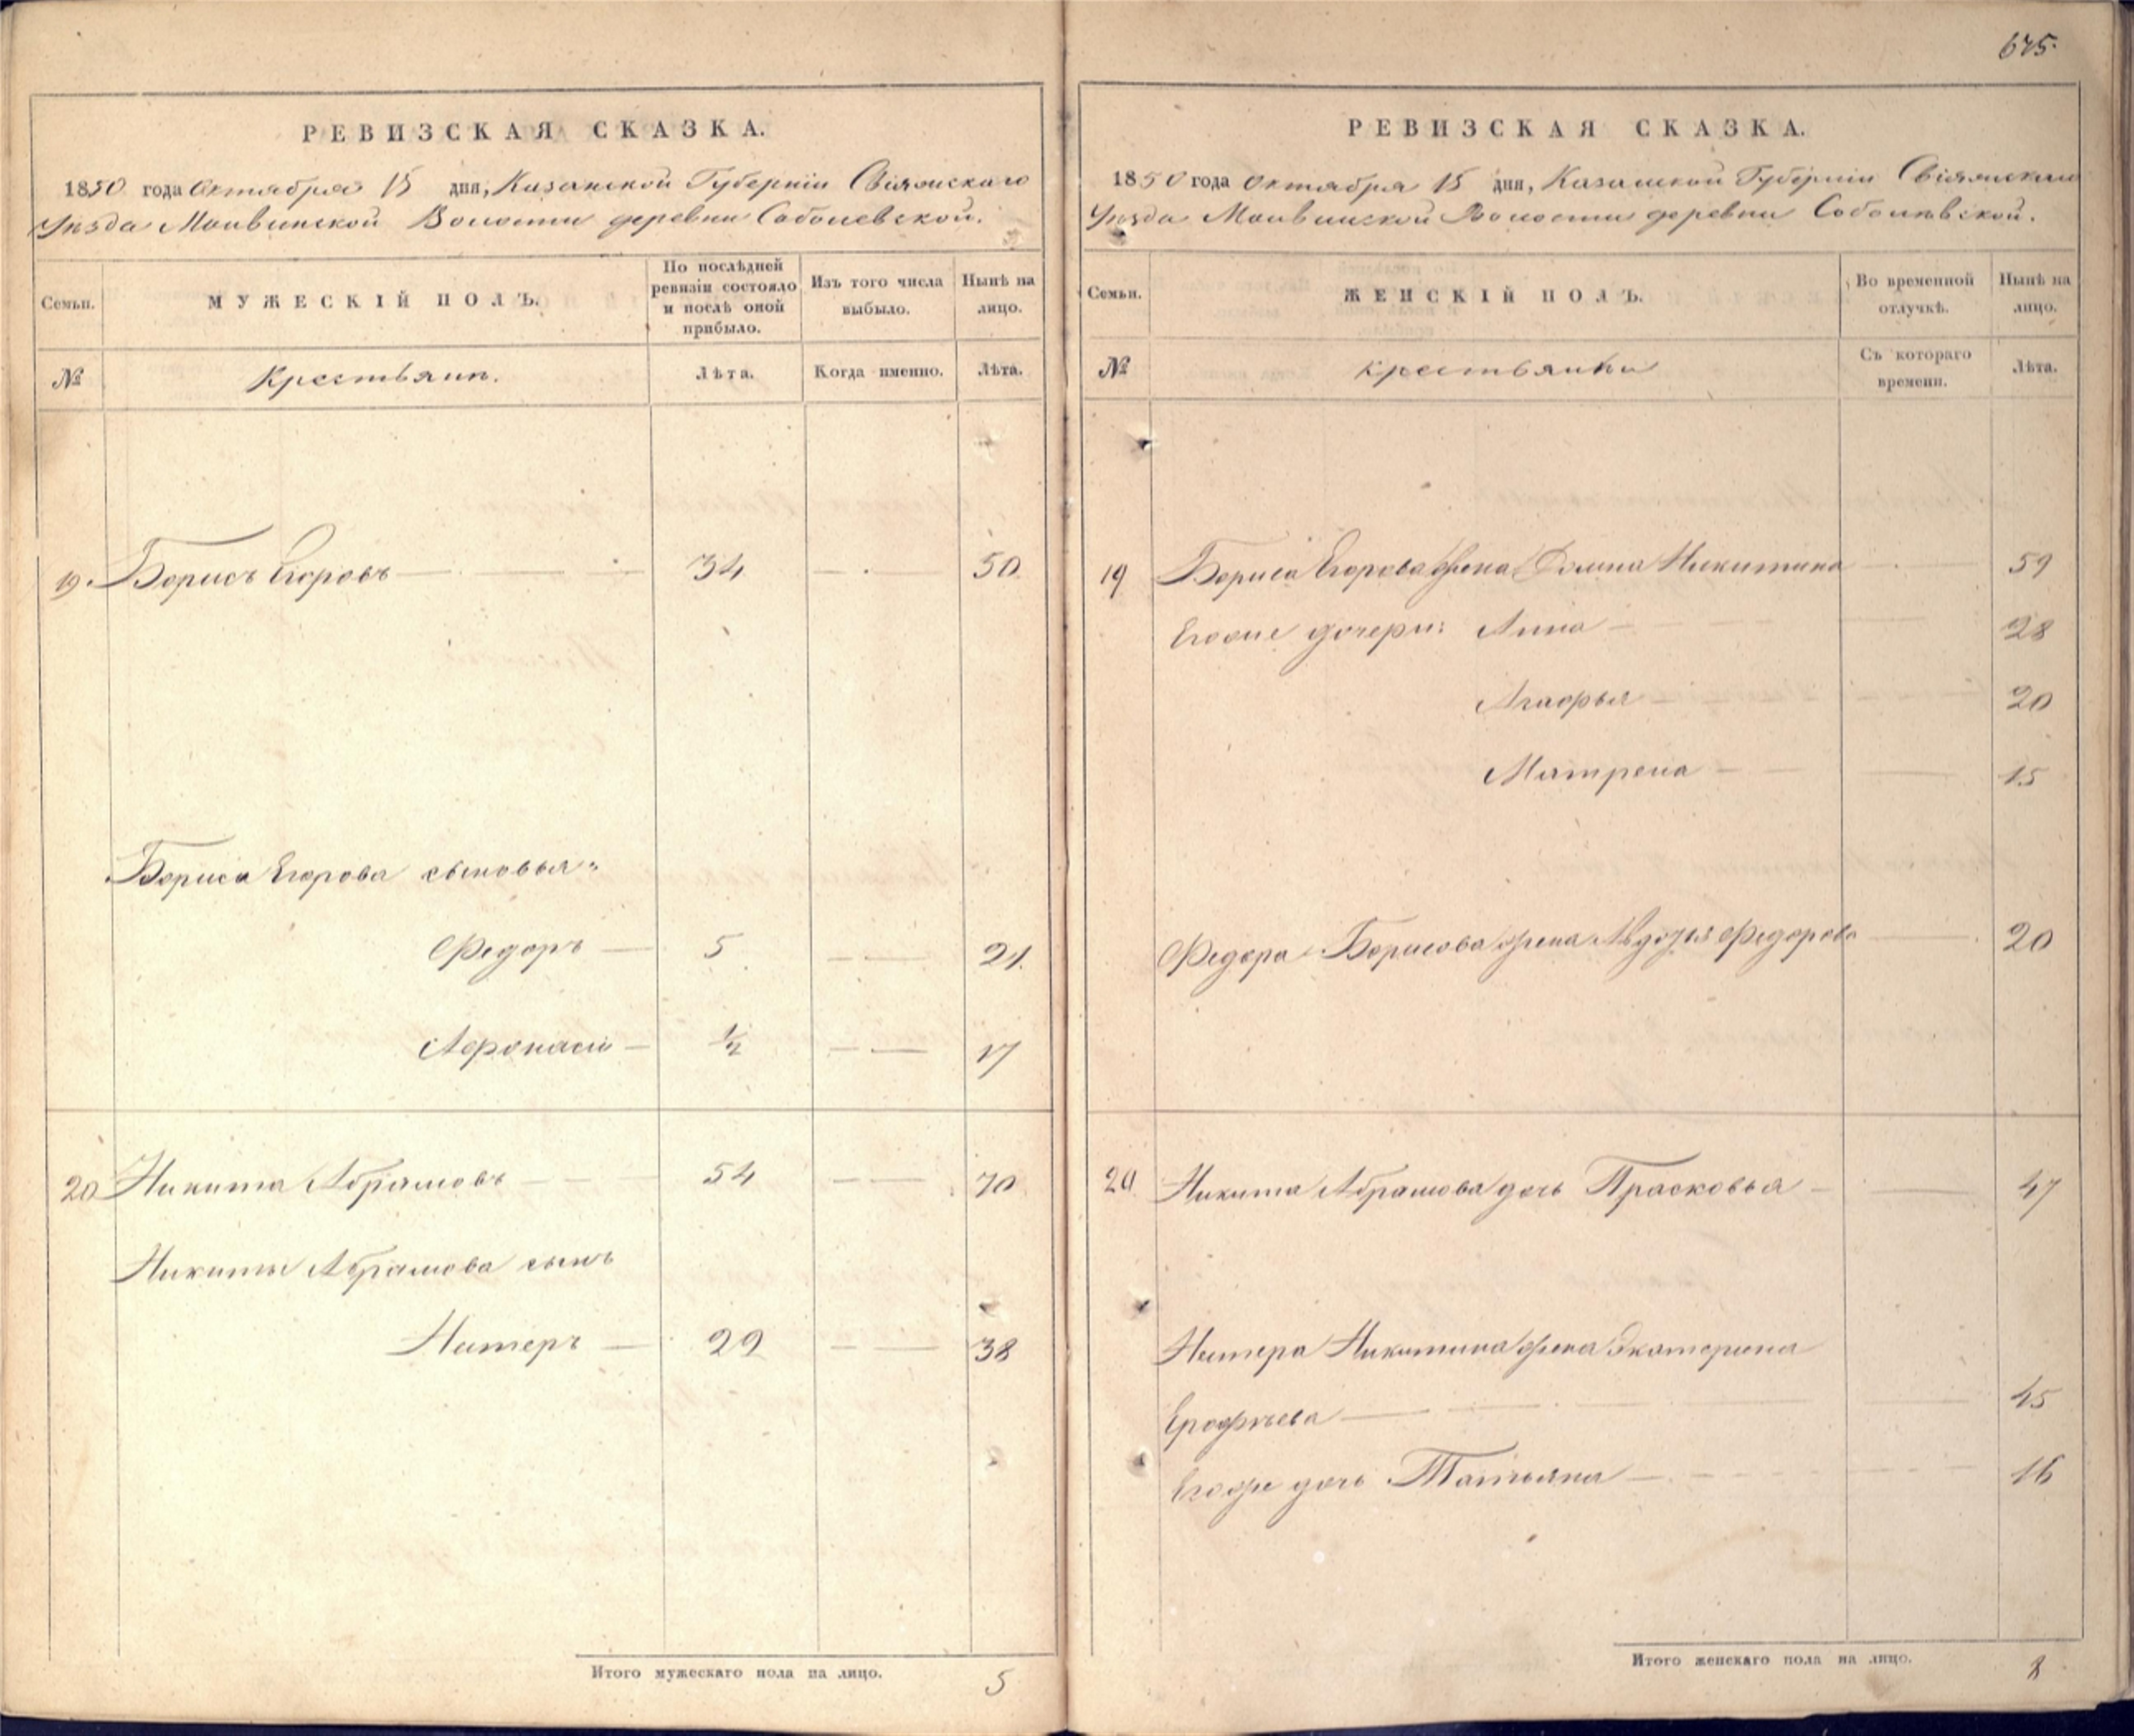 675.
РЕВИЗСКАЯ СКАЗКА.
1850 года Октября 15 дня, Казанской Губерніи Свіяжскаго
Уѣзда Воиости деревни Соболевской.
Семьи.
МУЖЕСКІЙ ПОЛЪ.
По послѣдней ревизіи состояло и послѣ оной прибыло.
Изъ того числа выбыло.
Нынѣ на лицо.
№
Крестьянъ.
Лѣта.
Когда именно.
Лѣта.
19. Борисъ Егоровъ 34 50
Бориса Егорова сыновья:
Федоръ 5 21.
Афонасій 1/2 17
20 Никита Абрамовъ 54 70
Никиты Абрамова сынъ
29 38
Итого мужескаго пола на лицо. 5
РЕВИЗСКАЯ СКАЗКА.
1850 года Октября 15 дня, Казанской Губерніи Свіяжскаго
Уѣзда Волости деревни Соболѣвской.
Семьи.
ЖЕНСКІЙ ПОЛЪ.
Во временной отлучкѣ.
Нынѣ на лицо.
№
крестьянки
Съ котораго времени.
Лѣта.
19 Бориса Егорова жена Никитина 59
Егоже дочери: Анна 28
Агафья 20
Матрена 15
Федора Борисова жена Авдотья Федорова 20
20 Никита Абрамова дочь Прасковья 47
Никитина жена Екатерина
Ерофѣева 45
Егоже дочь Татьяна 16
Итого женскаго пола на лицо. 8